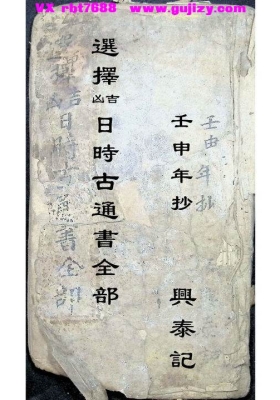 VX rbt7688 www.gujizy.com
壬申年抄
選擇吉凶日時古通書全部
擇吉日時古通書全部
壬申年抄
興泰記